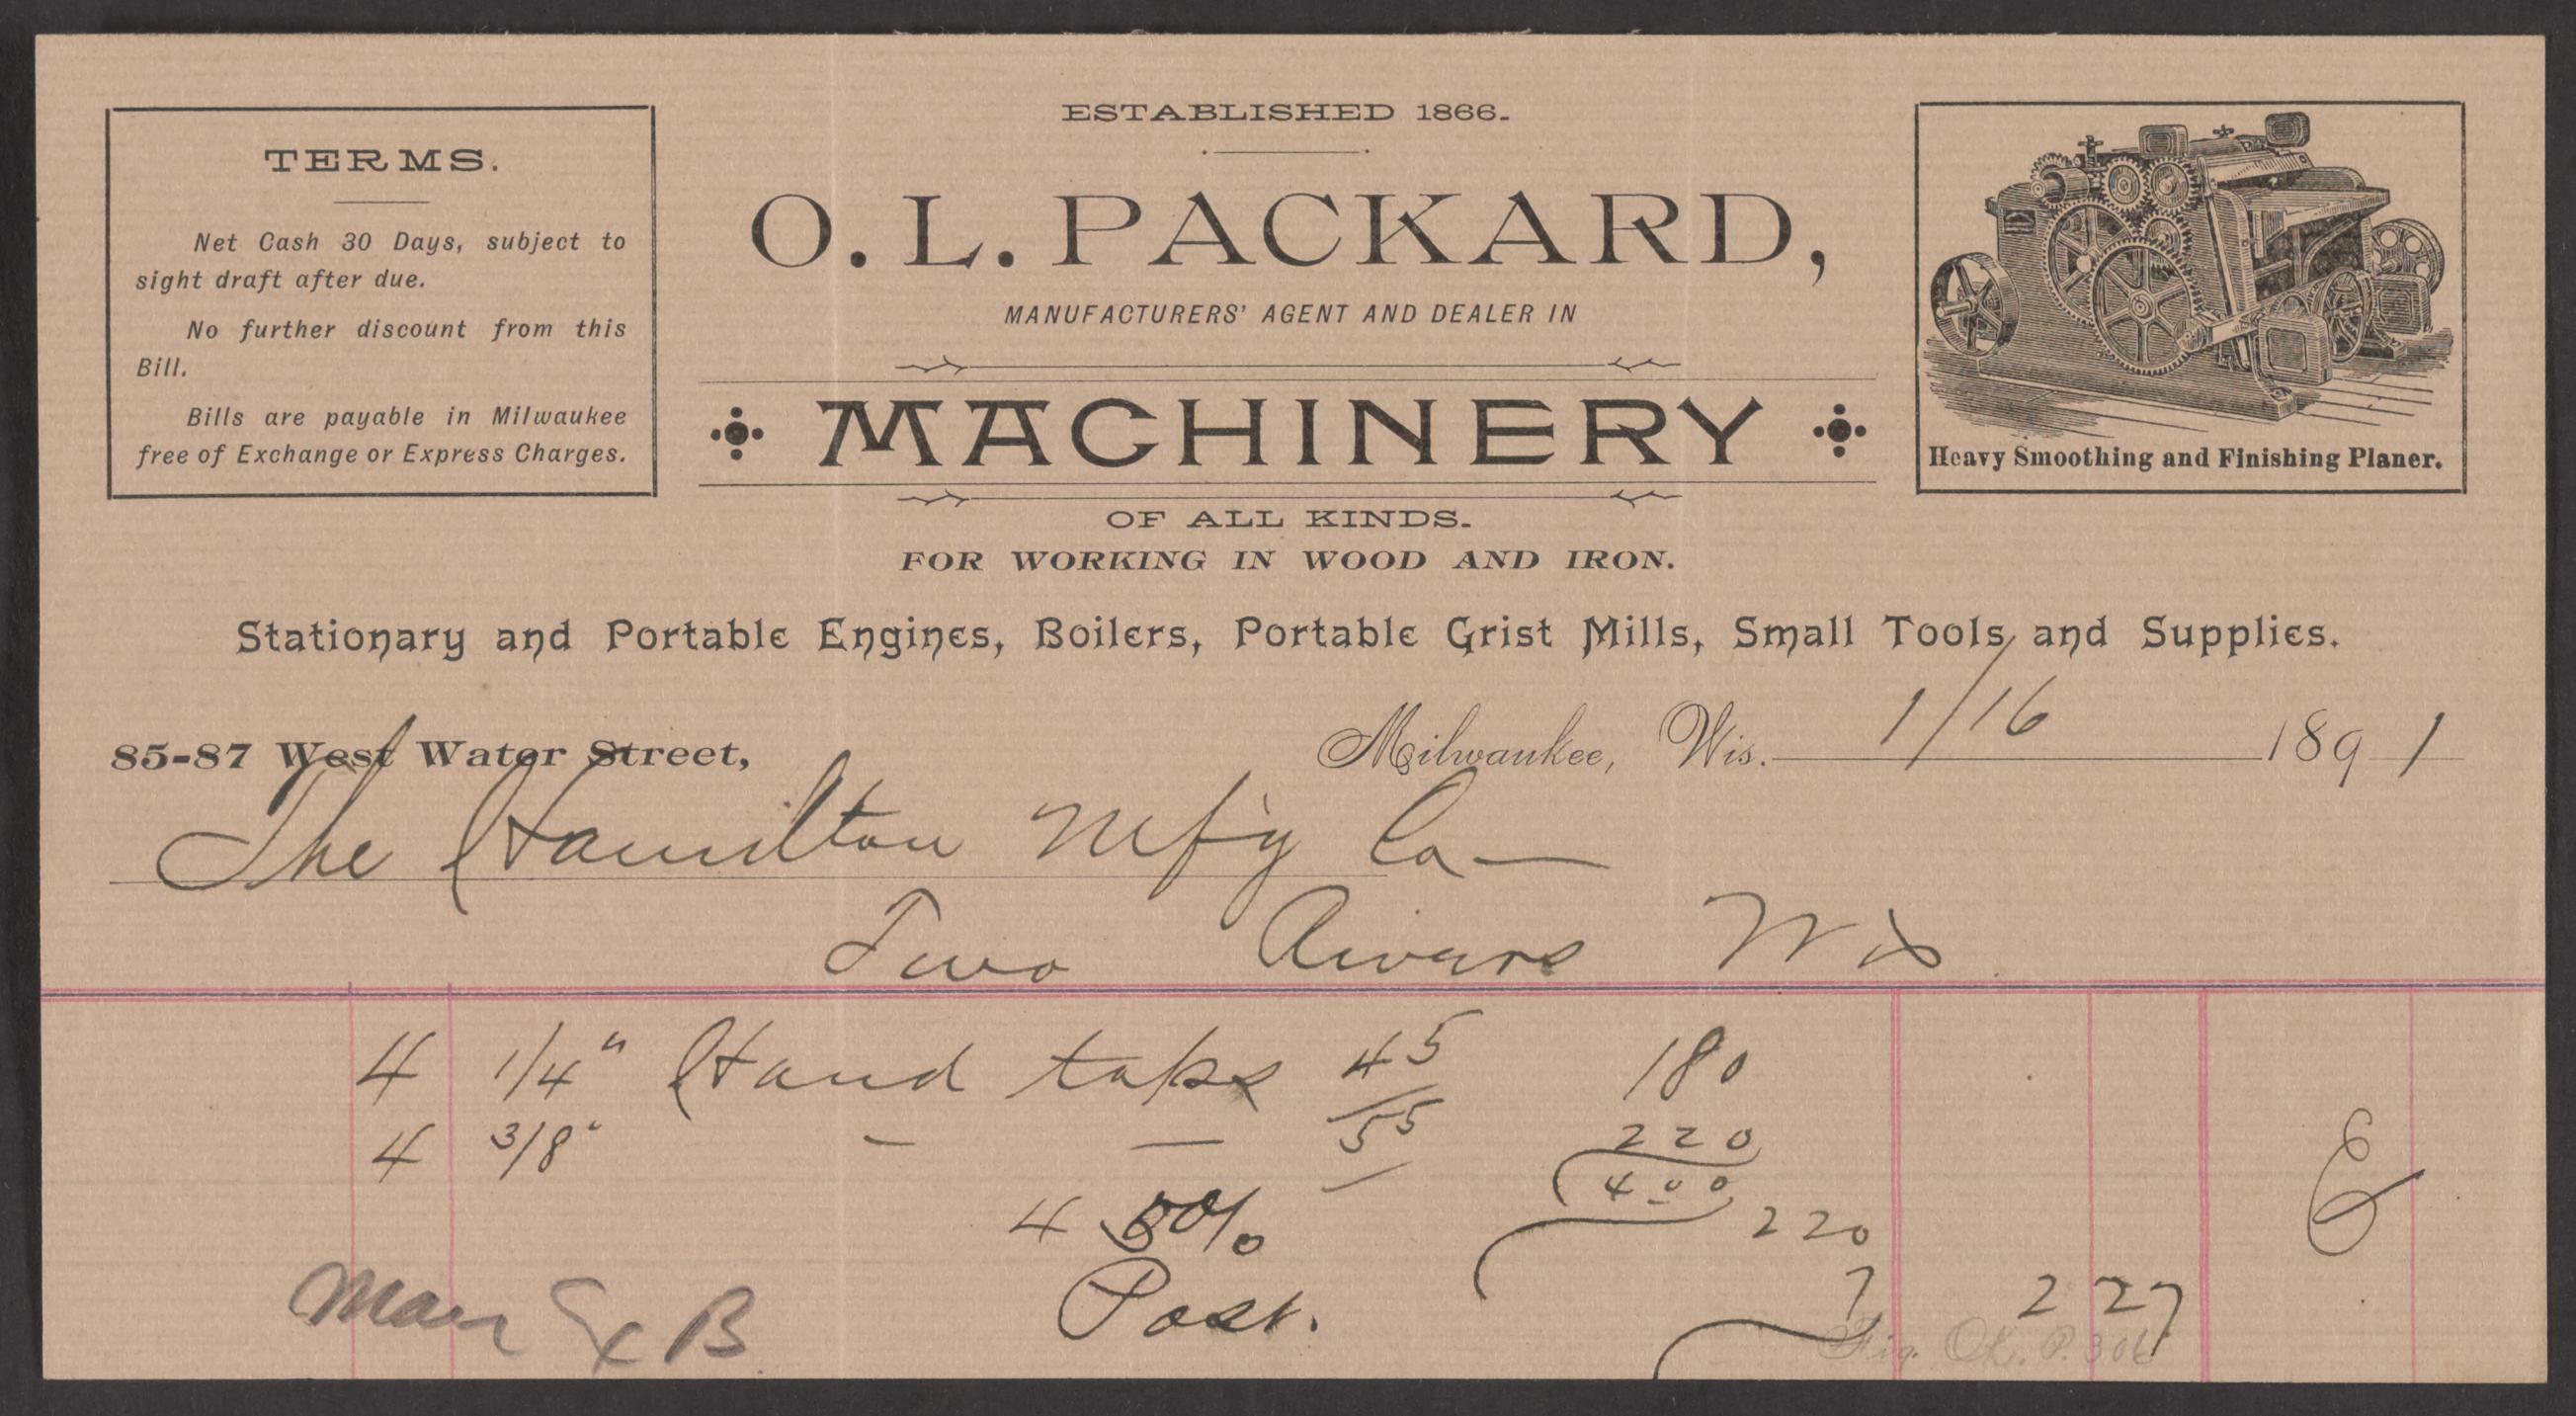 TERMS.
Net Cash 30 Days, subject to
sight draft after due.
No further discount from this
Bill.
Bills are payable in Milwaukee
free of Exchange or Express Charges.
ESTABLISHED 1866.
O. L. PACKARD,
MANUFACTURERS' AGENT AND DEALER IN
MACHINERY
OF ALL KINDS.
FOR WORKING IN WOOD AND IRON.
Heavy Smoothing and Finishing Planer.
Stationary and Portable Engines, Boilers, Portable Grist Mills, Small Tools and Supplies.
85-87 West Water Street,
Milwaukee, Wis. 1/16 1891
The Hamilton Mf'g Co
Two Rivers Wis
4 1/4" Hand taps 45 180
4 3/8" — — 55 220
400
220
Post. 7 2 27
B
Fig. OK. P. 306